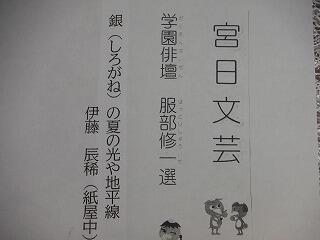 宮日文芸
学園俳壇　服部修一選
銀（しろがね）の夏の光や地平線
伊藤　辰稀（紙屋中）